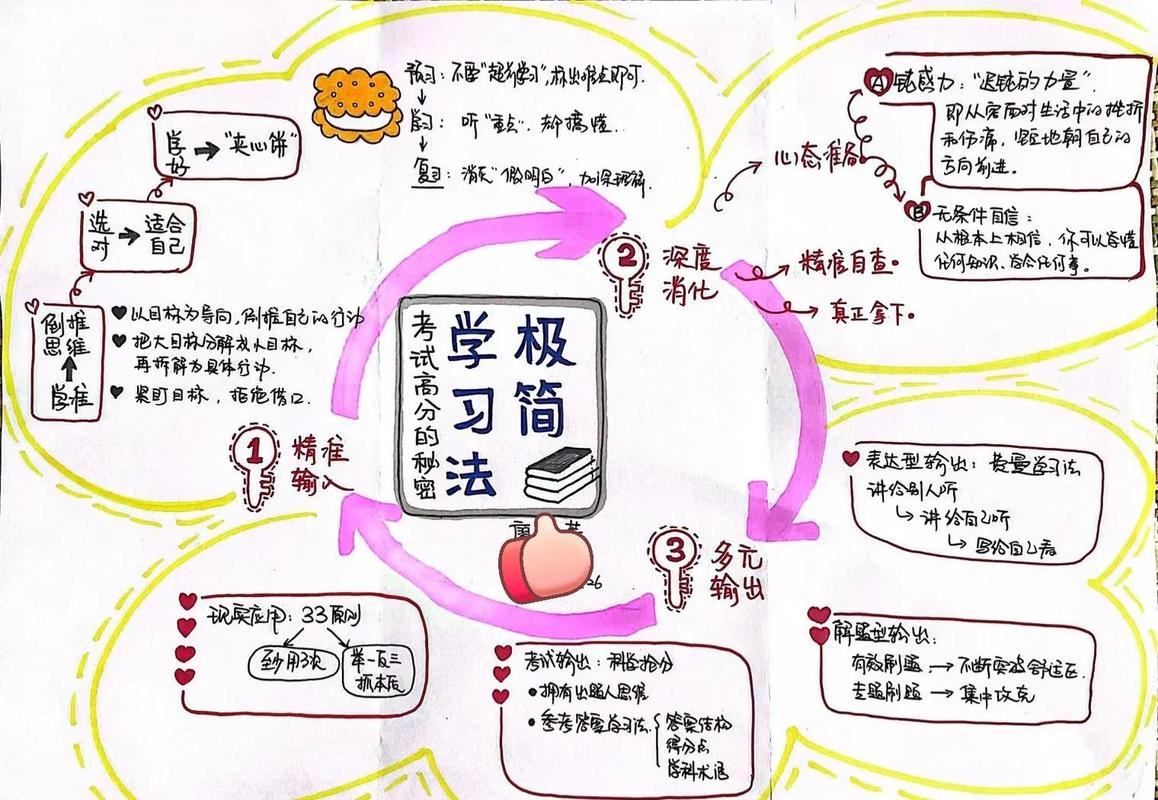 极简
学习法
考试高分的秘密
1 精准
输入
倒推
思维
学准
♥ 以目标为导向,倒推自己的行动
♥ 把大目标分解成小目标,
再拆解为具体行动.
♥ 紧盯目标,拒绝借口.
选对 → 适合
自己
学好 → "夹心饼"
预习: 不要"超前学习",标出难点即可.
听"重点", 却搞懂.
复习: 消灭"假明白", 加深理解.
2 深度
消化
心态准备
A 钝感力: "迟钝的力量".
即从容面对生活中的挫折
和伤痛, 坚定地朝自己的
方向前进.
B 无条件自信:
从根本上相信, 你可以弄懂
任何知识、学会任何事.
精准自查.
真正拿下.
3 多元
输出
表达型输出: 费曼学习法
讲给别人听
讲给自己听
写给自己看
解题型输出:
有效刷题 → 不断突破舒适区.
专题刷题 → 集中攻克
考试输出: 科学抢分
• 拥有出题人思维
• 参考答案学习法
答案结构
得分点
学科术语
现实应用: 33原则
至少用3次
举一反三
抓本质
26